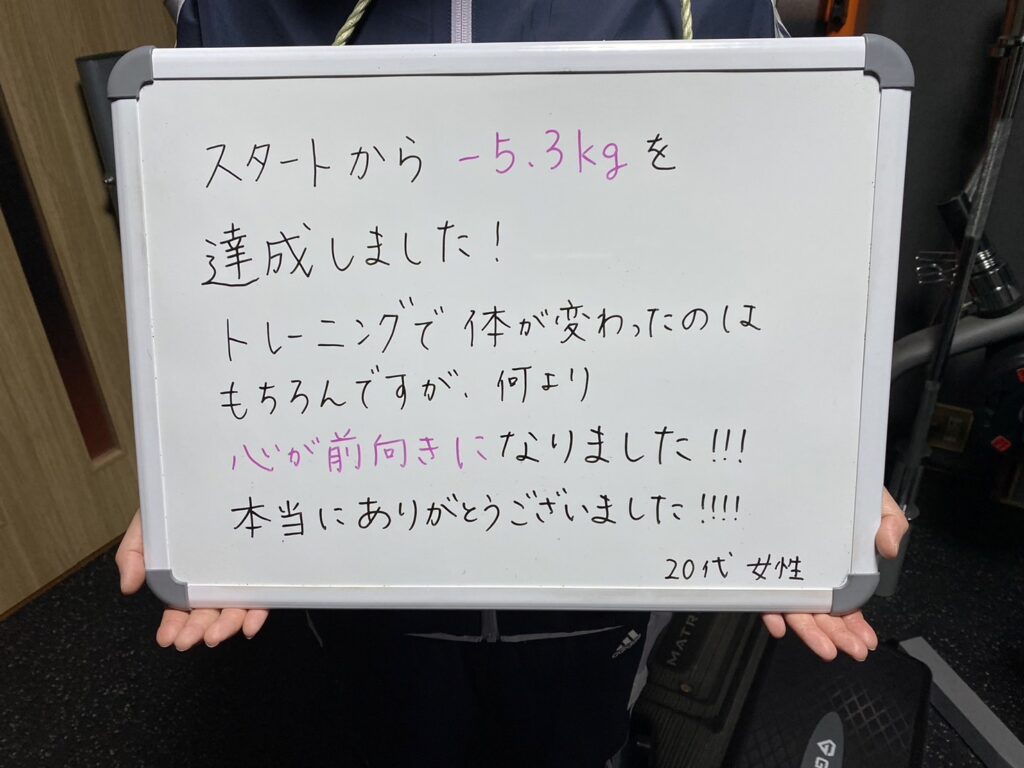 スタートから -5.3kgを
達成しました!
トレーニングで体が変わったのは
もちろんですが、何より
心が前向きになりました!!!
本当にありがとうございました!!!!
20代 女性
MATR
G